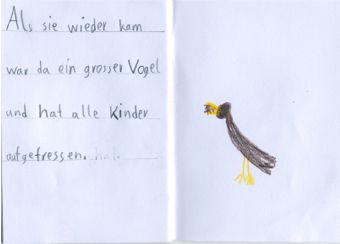 Als sie wieder kam
war da ein grosser Vogel
und hat alle Kinder
aufgefressen. hat.